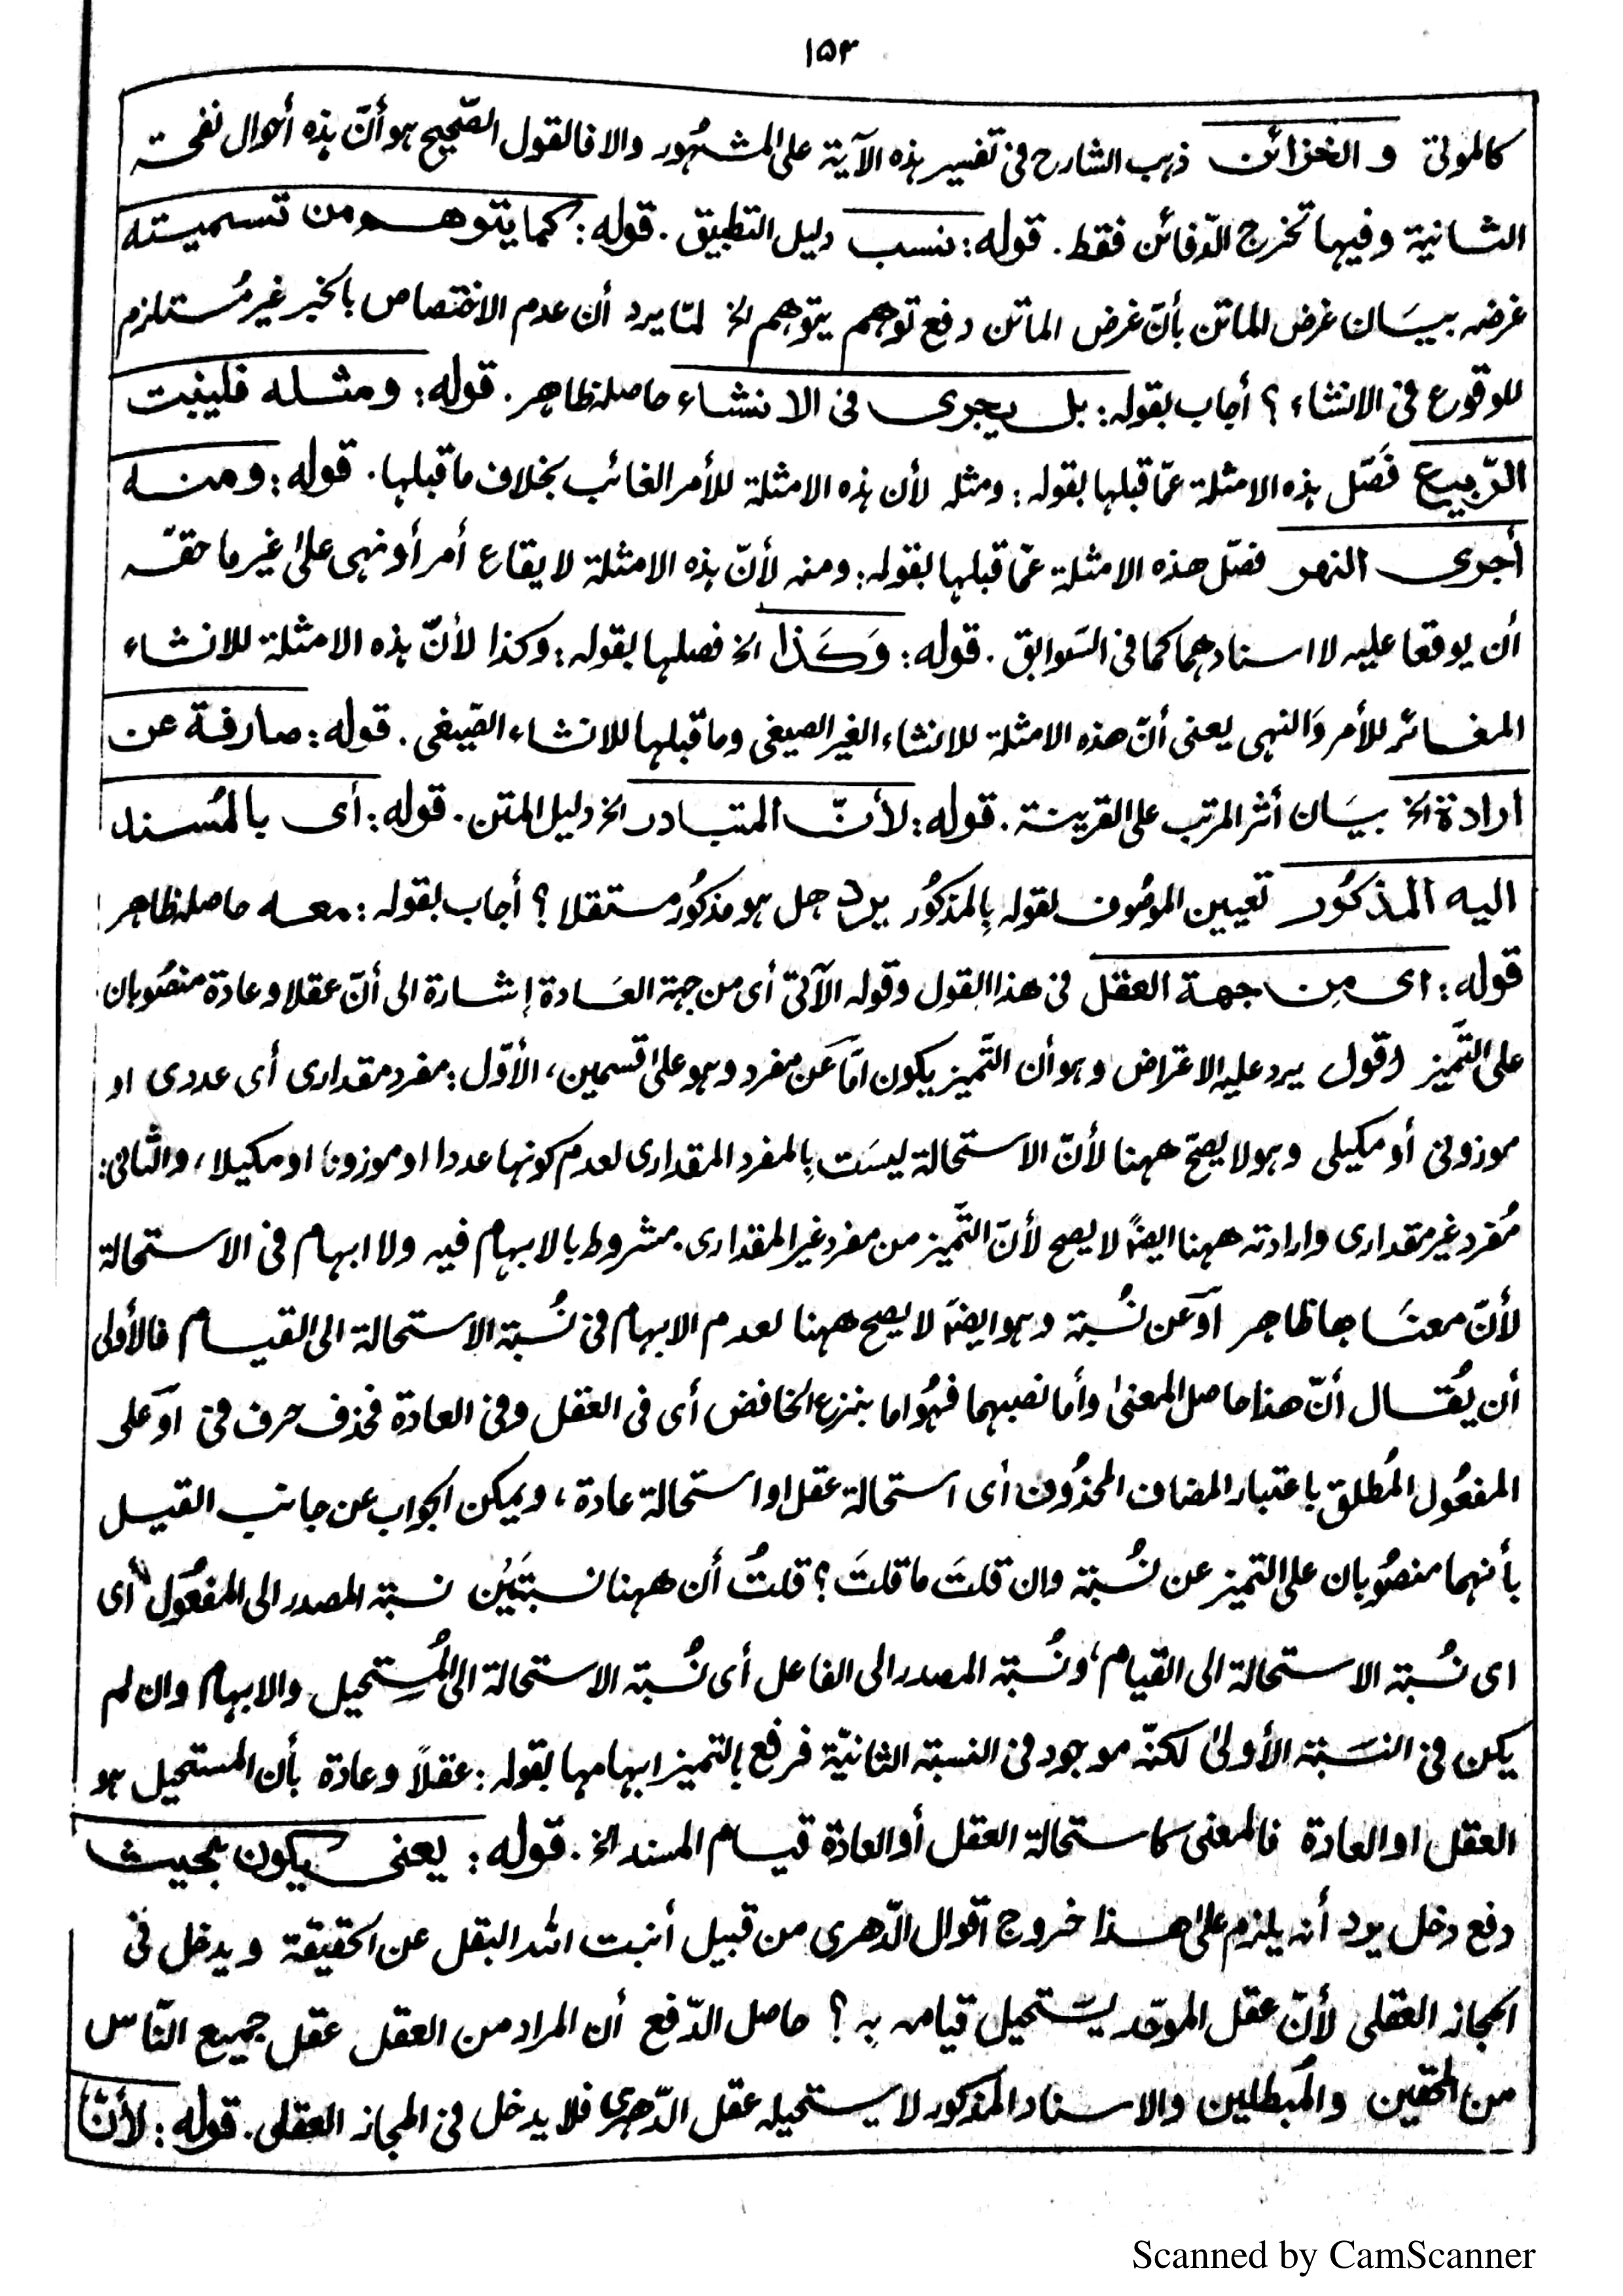 ١٥٣
كالموتى والخزائن ذهب الشارح فى تفسير هذه الآية على المشهور والا فالقول الصّحيح هو أنّ هذه أحوال نفحة
الثانية وفيها تخرج الدّفائن فقط. قوله: ننسب دليل التطبيق. قوله: كما يتوهم من تسميته
غرضه بيان غرض الماتن بأنّ غرض الماتن دفع توهم يتوهم الخ لمّا يرد أن عدم الاختصاص بالخبر غير مُستلزم
للوقوع فى الانشاء؟ أجاب بقوله: بل يجرى فى الانشاء حاصله ظاهر. قوله: ومثله فلينبت
الرّبيع فَصّل هذه الامثلة عمّا قبلها بقوله: ومثله لأن هذه الامثلة للأمر الغائب بخلاف ما قبلها. قوله: ومنه
أجرى النهر فصّل هذه الامثلة عمّا قبلها بقوله: ومنه لأنّ هذه الامثلة لايقاع أمر أو نهى علىٰ غير ما حقّه
أن يوقعا عليه لا اسنادهما كما فى السّوابق. قوله: وَكَذا الخ فصلها بقوله: وكذا لأنّ هذه الامثلة للانشاء
المغائر للأمر وَالنهى يعنى أنّ هذه الامثلة للانشاء الغير الصيغى وما قبلها للانشاء الصّيغى. قوله: صارفة عن
ارادة الخ بيَان أثر المرتب على القرينة. قوله: لأنّ المتبادر الخ دليل المتن. قوله: أى بالمُسند
اليه المذكُور تعيين الموصُوف لقوله بِالمذكُور يرد هل هو مذكُور مستقلا؟ أجاب بقوله: معه حاصله ظاهر
قوله: اى مِن جهة العقل فى هذا القول وقوله الآتىّ أى من جهة العَادة إشارة الى أنّ عقلا وعادة منصُوبان
على التَّميز اقول يرد عليه الاعتراض وهو أن التَّميز يكون امَّا عَن مفرد وهو علىٰ قسمين، الأوّل: مفرد مقدارى أى عددى او
موزونى أو مكيلى وهو لا يصحّ ههنا لأنّ الاستحالة ليسَت بِالمفرد المقدارى لعدم كونها عددا او موزونا او مكيلا، والثّانى:
مُفرد غير مقدارى وارادته ههنا ايضًا لا يصح لأنّ التَّميز من مفرد غير المقدارى مشروط بالابهام فيه ولا ابهام فى الاستحالة
لأنّ معنَاها ظاهر اَو عَن نُسبة وهو ايضًا لا يصح ههنا لعدم الابهام فى نُسبة الاستحالة الى القيام فالأولى
أن يُقال أنّ هذا حاصل المعنىٰ وأما نصبهما فهُو اما بنزع الخافض أى فى العقل وفى العادة فحذف حرف فى اَو على
المفعُول المُطلق باعتبار المضاف المحذُوف أى استحالة عقل او استحالة عادة، ويمكن الجواب عن جانب القيل
بأنهما منصُوبان على التميز عن نُسبة وان قلتَ ما قلتَ؟ قلتُ أن ههنا نسبتَين نسبة المصدر الى المفعُول أى
اى نُسبة الاستحالة الى القيام، ونُسبة المصدر الى الفاعل أى نُسبة الاستحالة الى المُستحيل والابهام وان لم
يكن فى النسَبة الأولىٰ لكنّه موجود فى النسبة الثانيّة فرفع بالتميز ابهامها بقوله: عقلاً وعادة بأن المستحيل هو
العقل او العادة فالمعنى كاستحالة العقل أو العادة قيام المسند الخ. قوله: يعنى يكون بحيث
دفع دخل يرد أنه يلزم علىٰ هذا خروج أقوال الدّهرى من قبيل أنبت الله البقل عن الحقيقة ويدخل فى
المجاز العقلى لأنّ عقل الموحّد يستحيل قيامه به؟ حاصل الدّفع أن المراد من العقل عقل جميع النّاس
من المحقين والمُبطلين والاسناد المذكور لا يستحيله عقل الدّهرى فلا يدخل فى المجاز العقلى. قوله: لأنّ
Scanned by CamScanner